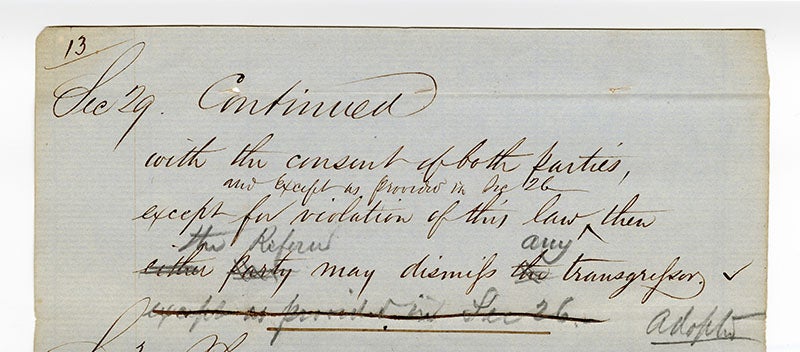 13
Sec 29. Continued
with the consent of both parties,
and except as provided in Sec 26
except for violation of this law, then
the Referee any
either party may dismiss the transgressor. ✓
except as provided in Sec 26.
Adopted